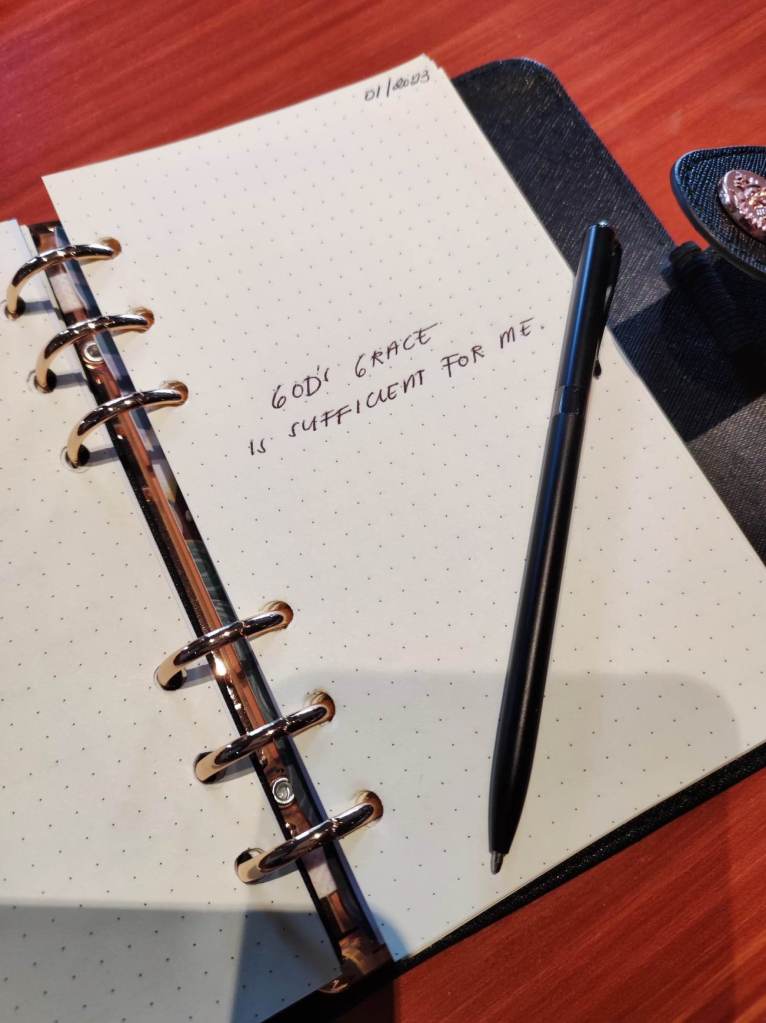 01/2023
GOD'S GRACE
IS SUFFICIENT FOR ME.